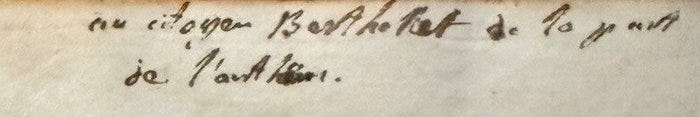 au citoyen Berthollet de la part
de l'auteur.